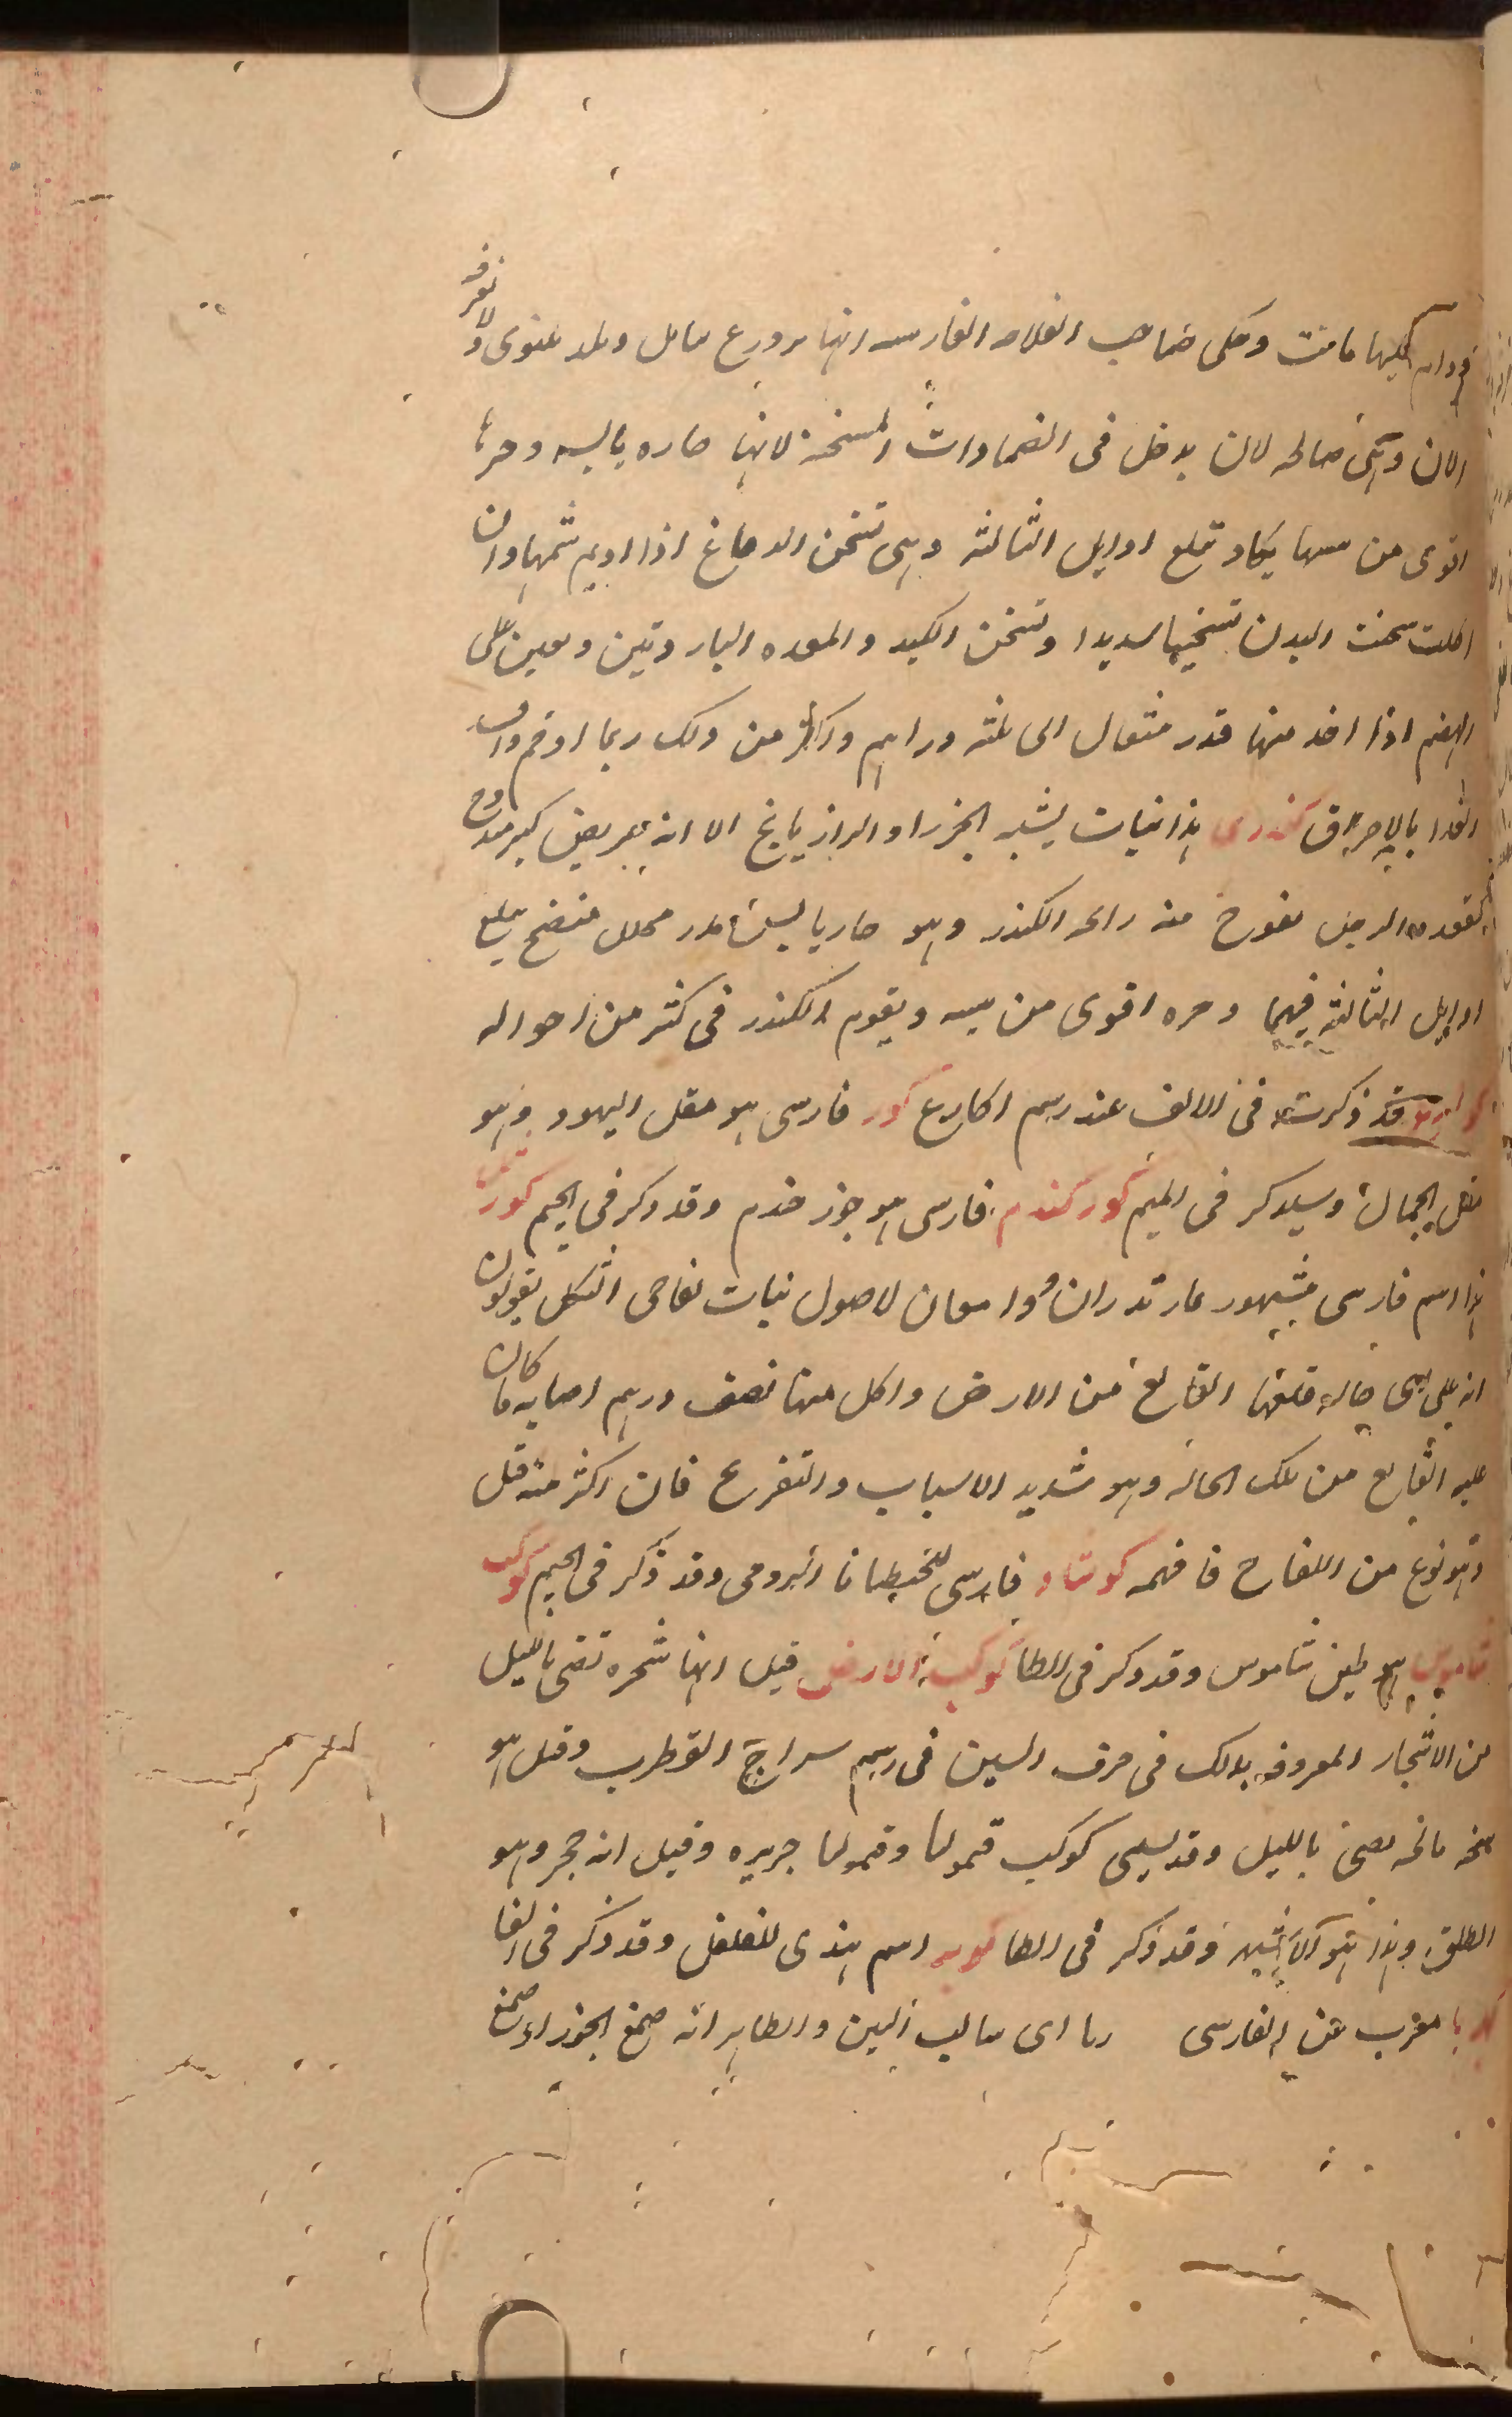 وحكى صاحب الفلاحه الفارسيه انها بزرع بابل وبلد نينوى ولا نعرفه
الان وهى صالحه لان يدخل فى الضمادات المسخنة لانها حاره يابسه وحرها
اقوى من يبسها يكاد تبلع اوايل الثالثة وهى تسخن الدماغ اذا اديم شمها وان
اكلت سخنت البدن تسخينا سديدا وتسخن الكبد والمعده الباردتين وتعين على
الهضم اذا اخذ منها قدر مثقال الى ثلثه دراهم واكثر من ذلك ربما اوخم وافسد
الغدا بالاحراق كندرى هذا نبات يشبه الجزر او الرازيانج الا انه بعريض كبير مدوح
كقعده الرجل تفوح منه رائحه الكندر وهو حار يابس مدر محلل منضج يبلع
اوايل الثالثة فيهما وحره اقوى من يبسه ويقوم الكندر فى كثير من احواله
قد ذكرت فى الالف عند رسم اكارع كور فارسى هو مقل اليهود وهو
مقل الجمال وسيذكر فى الميم كوركندم فارسى هو جوز جندم وقد ذكر فى الجيم كور
هذا اسم فارسى مشهور لاصول نبات تفاحى الشكل يقولون
انه على اى حاله قلعها القالع من الارض واكل منها نصف درهم اصابه ما كان
عليه القالع من تلك الحاله وهو شديد الاسبات والتفريح فان اكثر منه قتل
وهو نوع من اللفاح فافهمه كوشاد فارسى للجنطيانا الرومى وقد ذكر فى الجيم كوكب
شاموس هو طين شاموس وقد ذكر فى الطا كوكب الارض قيل انها شجره تضى بالليل
من الاشجار المعروفه بذلك فى حرف السين فى رسم سراج القطرب وقيل هو
بالليل وقد يسمى كوكب قيموليا وقيموليا جزيره وقيل انه حجر وهو
الطلق وهذا هو الاشبه وقد ذكر فى الطا اسم هندى للفلفل وقد ذكر فى الفا
كهربا معرب عن الفارسى ربا اى سالب التبن والظاهر انه صمغ الجوز او صمغ